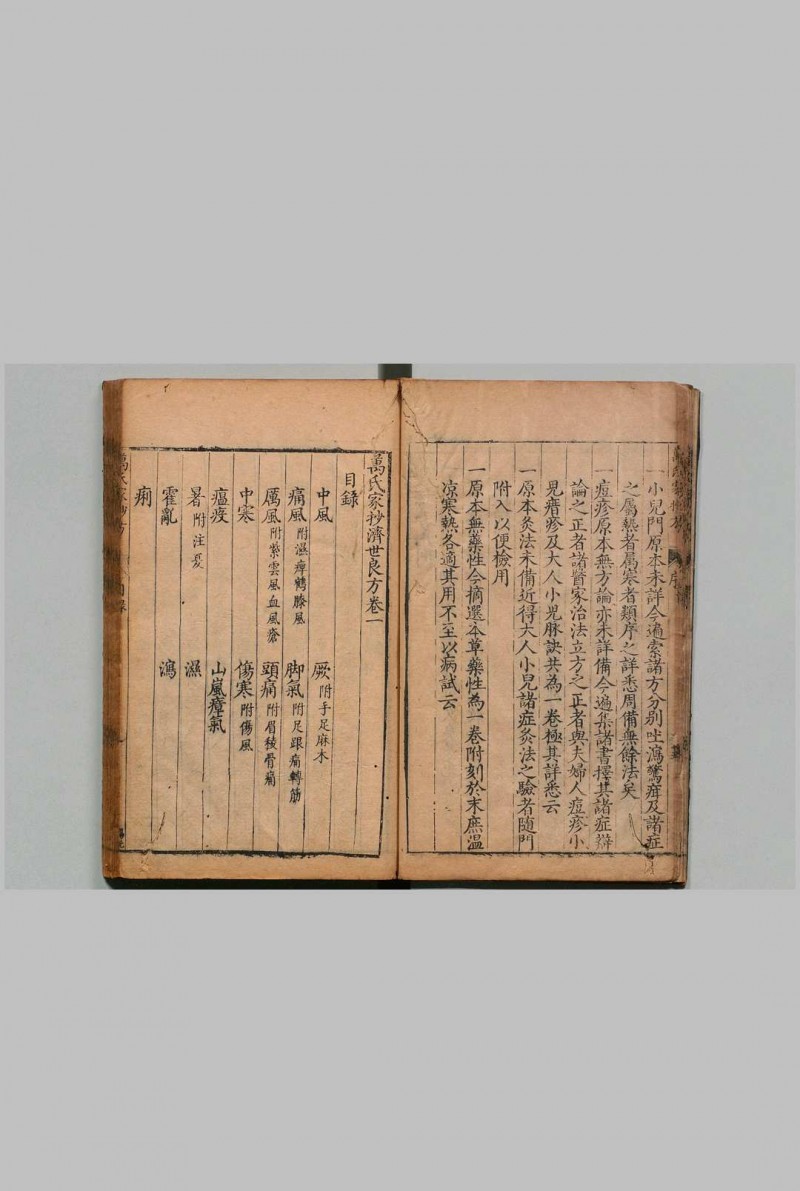 一小兒門原本未詳今遍索諸方分別吐瀉驚疳及諸症
之屬熱者屬寒者類序之詳悉周備無餘法矣
一痘疹原本無方論亦未詳備今遍集諸書擇其諸症辯
論之正者諸醫家治法立方之正者與夫婦人痘疹小
兒瘄疹及大人小兒脉訣共為一卷極其詳悉云
一原本灸法未備近得大人小兒諸症灸法之驗者隨門
附入以便檢用
一原本無藥性今摘選本草藥性為一卷附刻於末庶溫
凉寒熱各適其用不至以病試云
萬氏家抄濟世良方卷一
目錄
中風 厥附手足麻木
痛風附濕痺鶴膝風 脚氣附足跟痛轉筋
厲風附紫雲風血風瘡 頭痛附眉稜骨痛
中寒 傷寒附傷風
瘟疫 山嵐瘴氣
暑附注夏 濕
霍亂 瀉
痢
萬氏家抄方